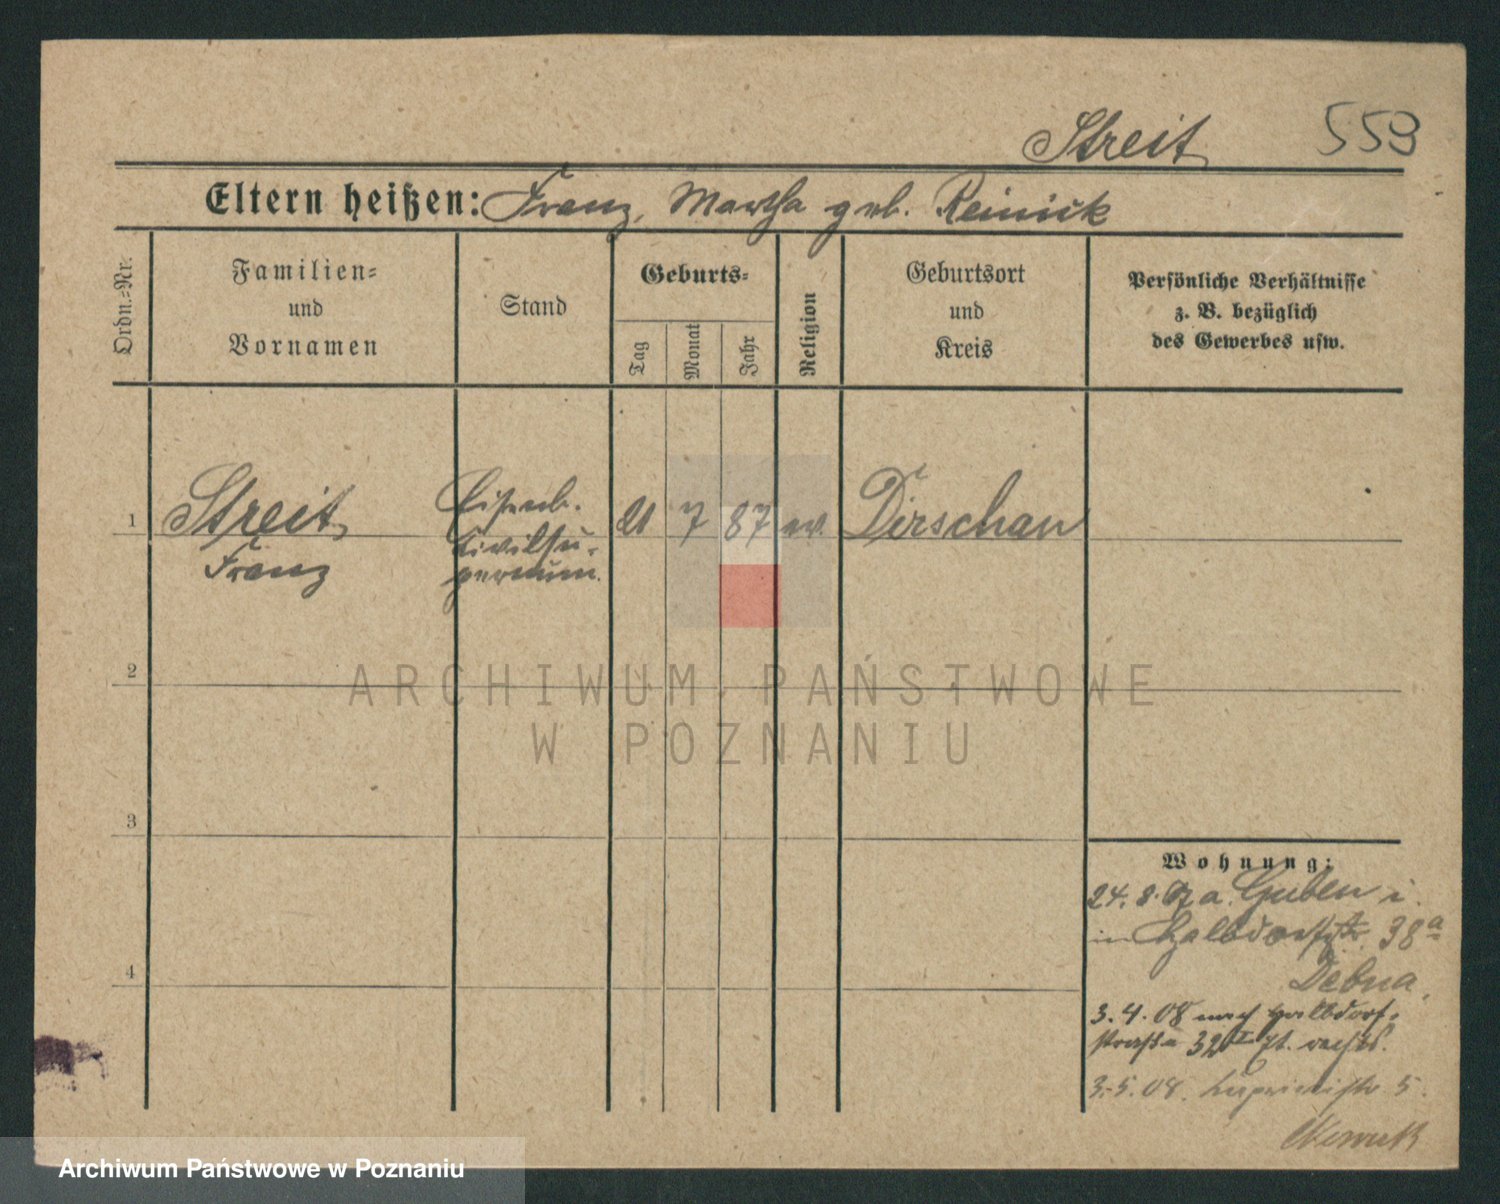 Streit 559
Eltern heißen: Franz, Martha geb. Reinick
Ordn.-Nr.
Familien-
und
Vornamen
Stand
Geburts-
Tag
Monat
Jahr
Religion
Geburtsort
und
Kreis
Persönliche Verhältnisse
z. B. bezüglich
des Gewerbes usw.
1 Streit Eisenb. 21 7 87 ev. Dirschau
Franz
Civilsu-
pernum.
2
ARCHIWUM PAŃSTWOWE
W POZNANIU
3
Wohnung:
24. 8. 07 a. Guben i.
in Halbdorfstr. 38a
4
3. 4. 08 nach Halbdorf-
straße 32 I Et. rechts.
3. 5. 08. 5.
Archiwum Państwowe w Poznaniu